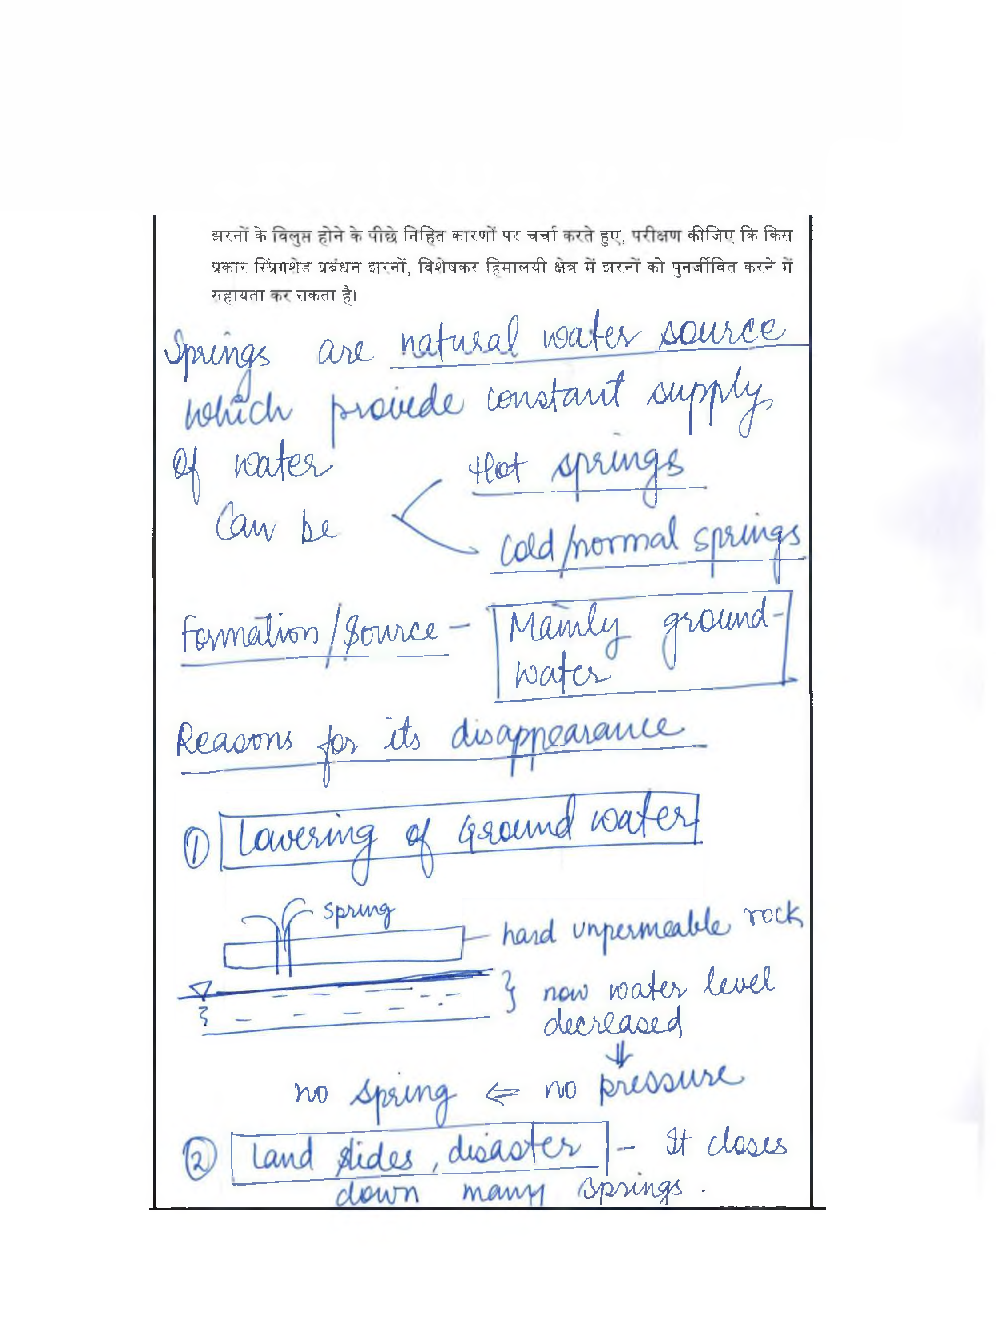 झरनों के विलुप्त होने के पीछे निहित कारणों पर चर्चा करते हुए, परीक्षण कीजिए कि किस
प्रकार स्प्रिंगशेड प्रबंधन झरनों, विशेषकर हिमालयी क्षेत्र में झरनों को पुनर्जीवित करने में
सहायता कर सकता है।
Springs are natural water source
which provide constant supply
of water
Hot springs
Can be
Cold/normal springs
Formation/Source - Mainly ground-
water
Reasons for its disappearance
① Lowering of Ground water
spring
hard unpermeable rock
now water level
decreased
no spring ⇐ no pressure
② Land slides, disaster - It closes
down many springs.